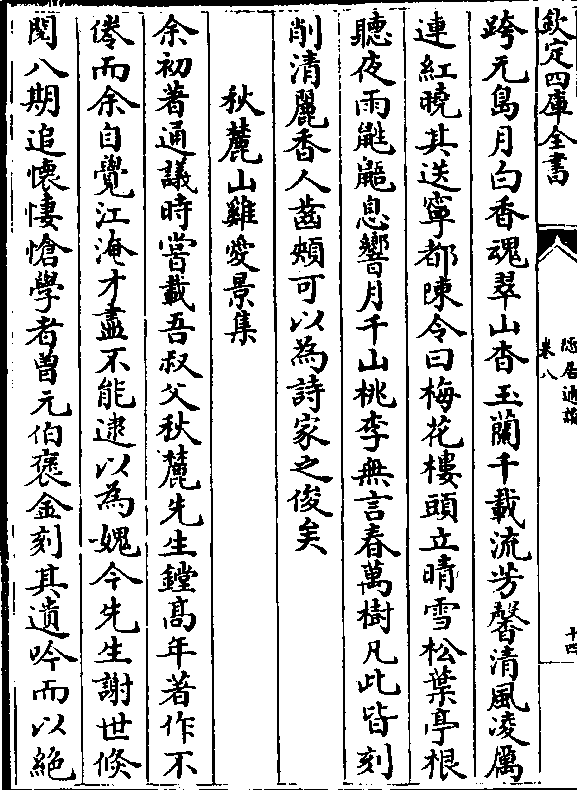 欽定四庫全書
隱居通議
卷八
十四
跨元島月白香魂翠山杳玉蘭千載流芳馨清風凌厲
連紅曉其送寧都陳令曰梅花樓頭立晴雪松葉亭根
聽夜雨鼪鼯息響月千山桃李無言春萬樹凡此皆刻
削清麗香人齒頰可以為詩家之俊矣
秋麓山雞愛景集
余初著通議時嘗載吾叔父秋麓先生鏜髙年著作不
倦而余自覺江淹才盡不能逮以為媿今先生謝世倏
閲八期追懷悽愴學者曽元伯裒金刻其遺吟而以絶